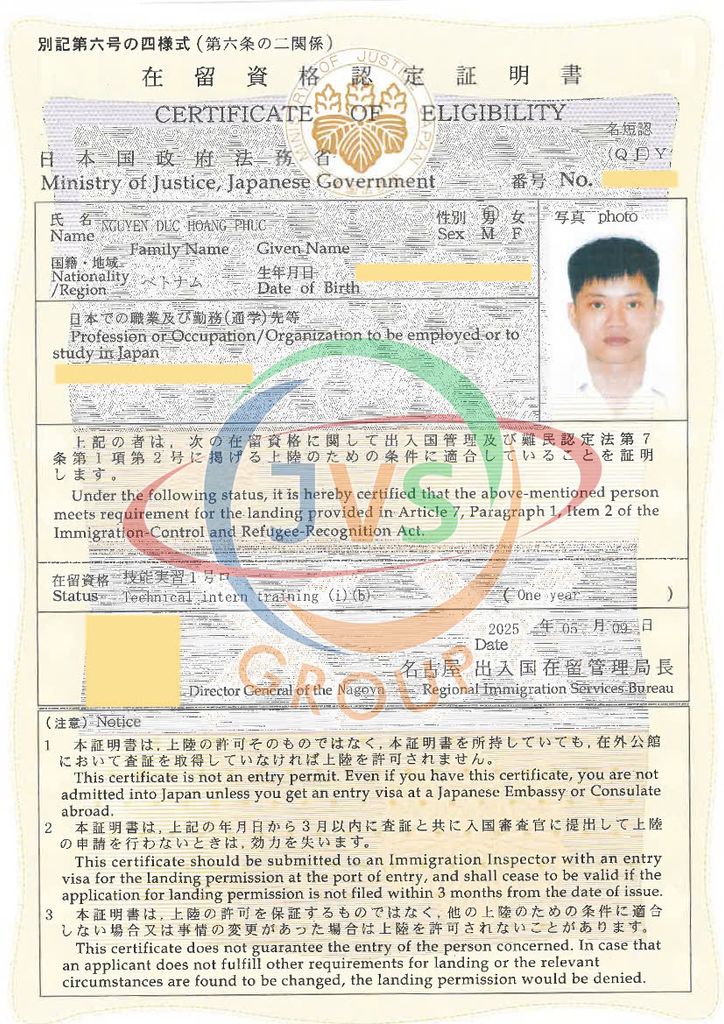 別記第六号の四様式 (第六条の二関係)
在留資格認定証明書
CERTIFICATE OF ELIGIBILITY
MINISTRY OF JUSTICE JAPAN
名短認
日本国政府法務省
(Q J) Y
Ministry of Justice, Japanese Government
番号 No.
氏名 NGUYEN DUC HOANG PHUC
Name
Family Name Given Name
性別 男 女
Sex M F
写真 photo
国籍・地域
Nationality ベトナム
/Region
生年月日
Date of Birth
日本での職業及び勤務(通学)先等
Profession or Occupation/Organization to be employed or to
study in Japan
上記の者は, 次の在留資格に関して出入国管理及び難民認定法第7
条第1項第2号に掲げる上陸のための条件に適合していることを証明
します。
Under the following status, it is hereby certified that the above-mentioned person
meets requirement for the landing provided in Article 7, Paragraph 1, Item 2 of the
Immigration-Control and Refugee-Recognition Act.
JVS
在留資格 技能実習1号ロ
Status Technical intern training (i)(b) ( One year )
2025 年 05 月 09 日
Date
GROUP
名古屋 出入国在留管理局長
Director General of the Nagoya Regional Immigration Services Bureau
(注意) Notice
1 本証明書は, 上陸の許可そのものではなく, 本証明書を所持していても, 在外公館
において査証を取得していなければ上陸を許可されません。
This certificate is not an entry permit. Even if you have this certificate, you are not
admitted into Japan unless you get an entry visa at a Japanese Embassy or Consulate
abroad.
2 本証明書は, 上記の年月日から3月以内に査証と共に入国審査官に提出して上陸
の申請を行わないときは, 効力を失います。
This certificate should be submitted to an Immigration Inspector with an entry
visa for the landing permission at the port of entry, and shall cease to be valid if the
application for landing permission is not filed within 3 months from the date of issue.
3 本証明書は, 上陸の許可を保証するものではなく, 他の上陸のための条件に適合
しない場合又は事情の変更があった場合は上陸を許可されないことがあります。
This certificate does not guarantee the entry of the person concerned. In case that
an applicant does not fulfill other requirements for landing or the relevant
circumstances are found to be changed, the landing permission would be denied.